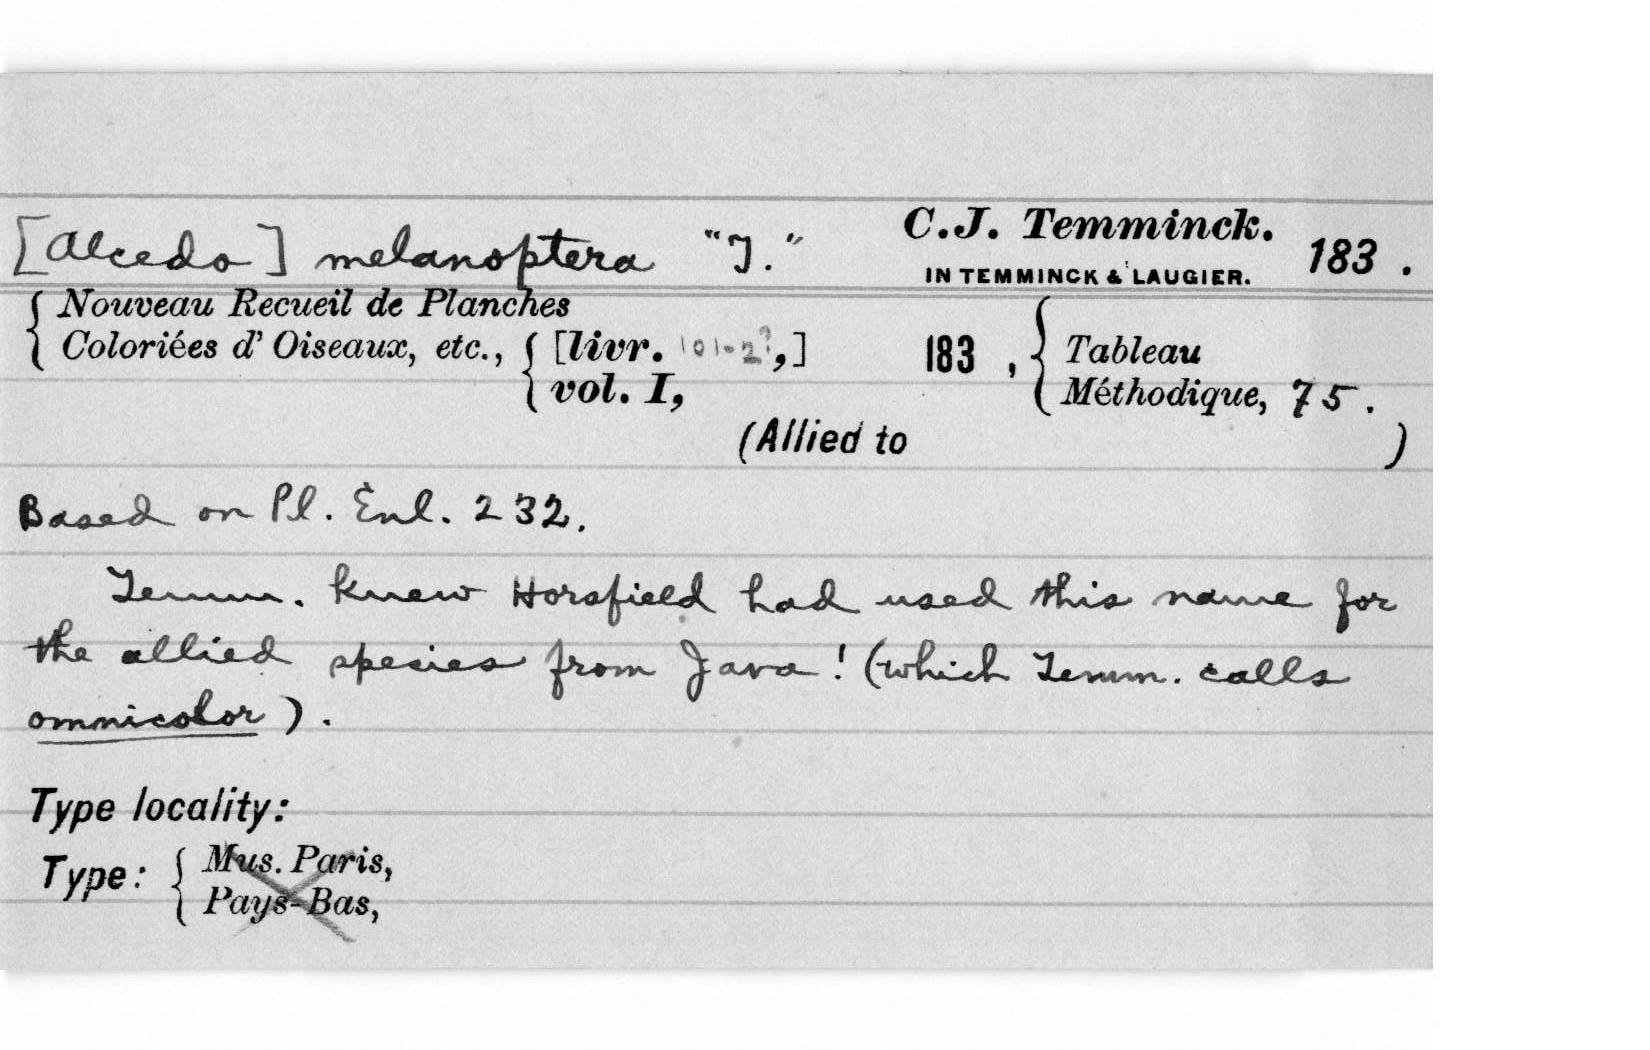 [Alcedo] melanoptera "T." C.J. Temminck. 183.
IN TEMMINCK & LAUGIER.
Nouveau Recueil de Planches
Coloriées d' Oiseaux, etc., [livr. 101-2?,] 183, Tableau
vol. I, Méthodique, 75.
(Allied to )
Based on Pl. Enl. 232.
Temm. knew Horsfield had used this name for
the allied species from Java! (which Temm. calls
omnicolor).
Type locality:
Type: Mus. Paris,
Pays-Bas,